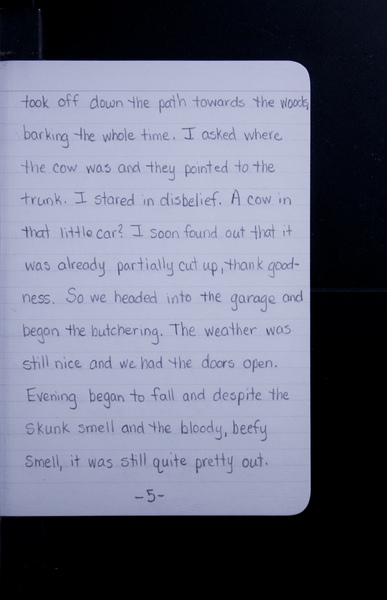 took off down the path towards the woods,
barking the whole time. I asked where
the cow was and they pointed to the
trunk. I stared in disbelief. A cow in
that little car? I soon found out that it
was already partially cut up, thank good-
ness. So we headed into the garage and
began the butchering. The weather was
still nice and we had the doors open.
Evening began to fall and despite the
skunk smell and the bloody, beefy
smell, it was still quite pretty out.
-5-